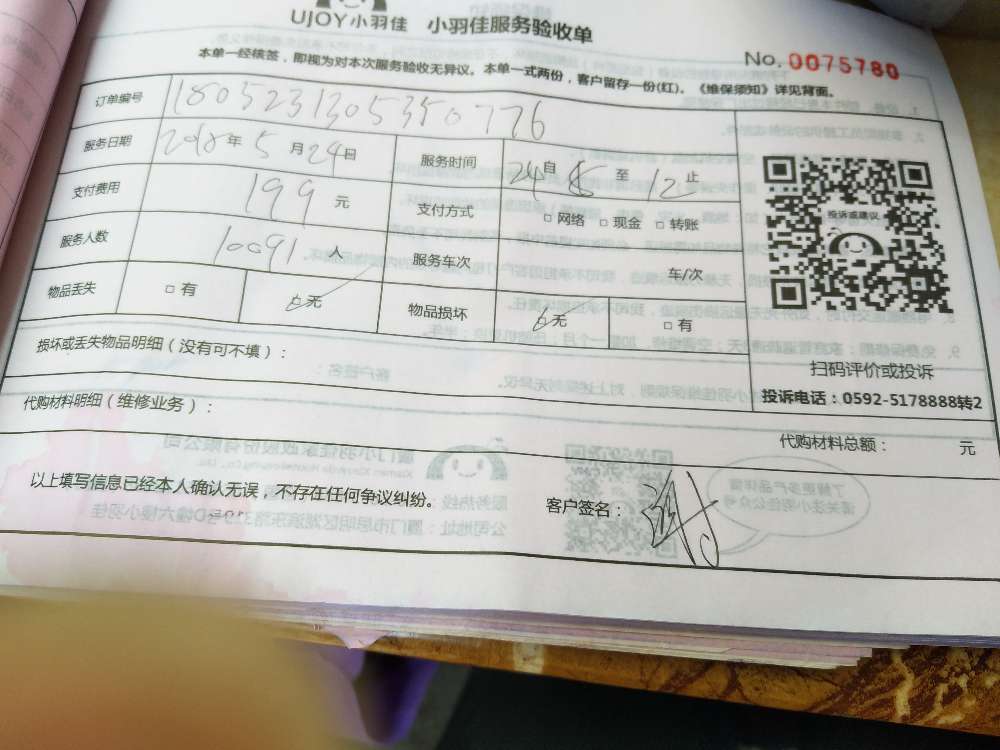 UJOY小羽佳 小羽佳服务验收单
No. 0075780
本单一经核签，即视为对本次服务验收无异议。本单一式两份，客户留存一份(红)。《维保须知》详见背面。
订单编号 180523130535077 6
服务日期 2018年5月24日 服务时间 24自 8 至 12止
支付费用 199 元 支付方式 □网络 □现金 □转账
服务人数 10091 人 服务车次 车/次
物品丢失 □有 □无 物品损坏 □无 □有
损坏或丢失物品明细（没有可不填）：
投诉或建议
扫码评价或投诉
投诉电话：0592-5178888转2
代购材料明细（维修业务）：
代购材料总额： 元
以上填写信息已经本人确认无误，不存在任何争议纠纷。 客户签名：